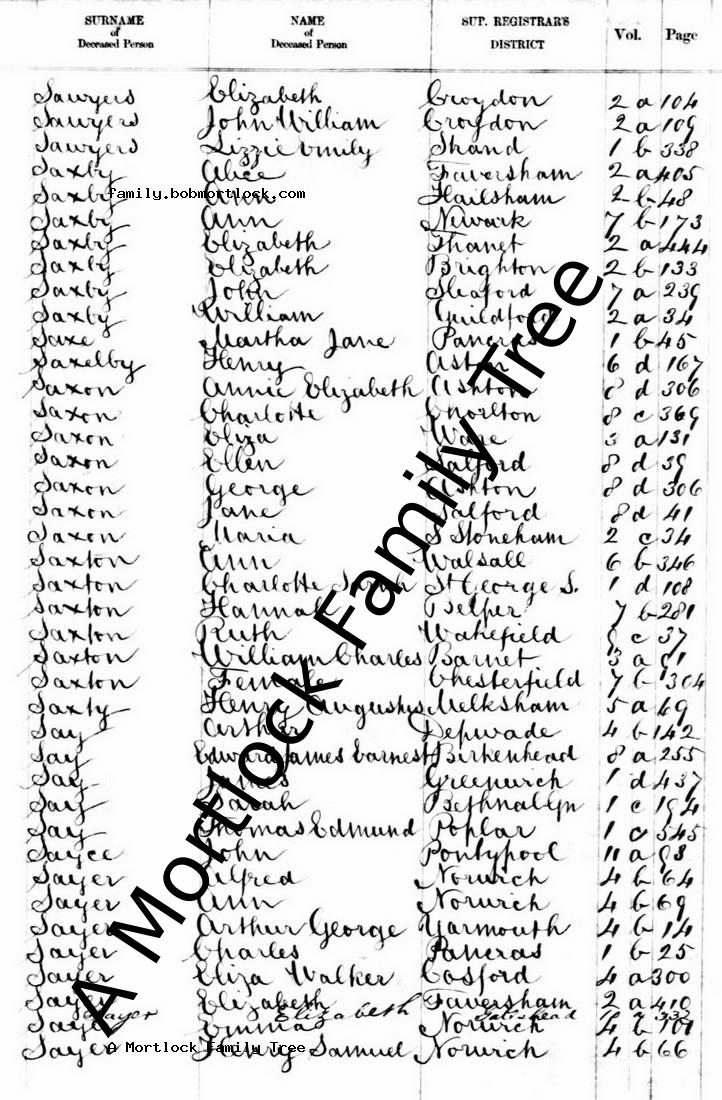 SURNAME of Deceased Person NAME of Deceased Person SUP. REGISTRAR'S DISTRICT Vol. Page
Sawyers Elizabeth Croydon 2 a 104
Sawyers John William Croydon 2 a 109
Sawyers Lizzie Emily Strand 1 b 338
Saxby Alice Faversham 2 a 405
family.bobmortlock.com
Saxby Ann Hailsham 2 b 48
Saxby Ann Newark 7 b 173
Saxby Elizabeth Thanet 2 a 444
Saxby Elizabeth Brighton 2 b 133
Saxby John Sleaford 7 a 239
Saxby William Guildford 2 a 34
Saxe Martha Jane Pancras 1 b 45
Saxelby Henry Aston 6 d 167
Saxon Annie Elizabeth Ashton 8 d 306
Saxon Charlotte Chorlton 8 c 369
Saxon Eliza Ware 3 a 131
Saxon Ellen Salford 8 d 39
Saxon George Ashton 8 d 306
Saxon Jane Salford 8 d 41
Saxon Maria S Stoneham 2 c 34
Saxton Ann Walsall 6 b 346
Saxton Charlotte Sarah St George S. 1 d 108
Saxton Hannah Belper 7 b 281
Saxton Ruth Wakefield 9 c 37
Saxton William Charles Barnet 3 a 91
Saxton Female Chesterfield 7 b 304
Saxty Henry Augustus Melksham 5 a 49
Say Arthur Depwade 4 b 142
Say Edward James Earnest Birkenhead 8 a 255
Say James Greenwich 1 d 437
Say Sarah Bethnal Gn 1 c 194
Say Thomas Edmund Poplar 1 c 545
Sayce John Pontypool 11 a 93
Sayer Alfred Norwich 4 b 64
Sayer Ann Norwich 4 b 69
Sayer Arthur George Yarmouth 4 b 14
Sayer Charles Pancras 1 b 25
Sayer Eliza Walker Cosford 4 a 300
Sayer Elizabeth Faversham 2 a 410
Sayer Elizabeth Gateshead 10 a 333
Sayer Emma Norwich 4 b 101
Sayer Henry Samuel Norwich 4 b 66
A Mortlock Family Tree
A Mortlock Family Tree